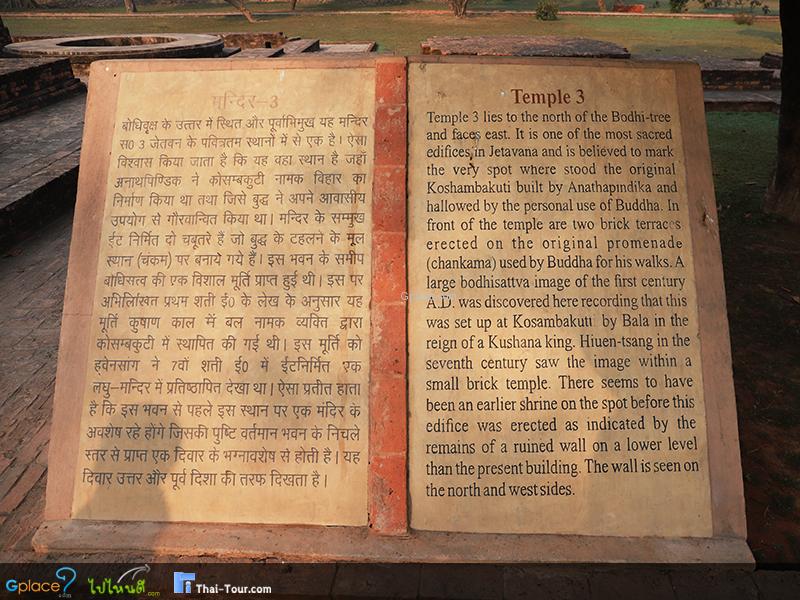 मन्दिर–3
बोधिवृक्ष के उत्तर में स्थित और पूर्वाभिमुख यह मन्दिर
स0 3 जेतवन के पवित्रतम स्थानों में से एक है। ऐसा
विश्वास किया जाता है कि यह वहा स्थान है जहाँ
अनाथपिण्डिक ने कोसम्बकुटी नामक विहार का
निर्माण किया था तथा जिसे बुद्ध ने अपने आवासीय
उपयोग से गौरवान्वित किया था। मन्दिर के सम्मुख
ईट निर्मित दो चबूतरे हैं जो बुद्ध के टहलने के मूल
स्थान (चंकम) पर बनाये गये हैं। इस भवन के समीप
बोधिसत्व की एक विशाल मूर्ति प्राप्त हुई थी। इस पर
अभिलिखित प्रथम शती ई0 के लेख के अनुसार यह
मूर्ति कुषाण काल में बल नामक व्यक्ति द्वारा
कोसम्बकुटी में स्थापित की गई थी। इस मूर्ति को
ह्वेनसाग ने 7वॉ शती ई0 में ईटनिर्मित एक
लघु–मन्दिर में प्रतिष्ठापित देखा था। ऐसा प्रतीत होता
है कि इस भवन से पहले इस स्थान पर एक मंदिर के
अवशेष रहे होंगे जिसकी पुष्टि वर्तमान भवन के निचले
स्तर से प्राप्त एक दिवार के भग्नावशेष से होती है। यह
दिवार उत्तर और पूर्व दिशा की तरफ दिखता है।
Temple 3
Temple 3 lies to the north of the Bodhi-tree
and faces east. It is one of the most sacred
edifices in Jetavana and is believed to mark
the very spot where stood the original
Koshambakuti built by Anathapindika and
hallowed by the personal use of Buddha. In
front of the temple are two brick terraces
erected on the original promenade
(chankama) used by Buddha for his walks. A
large bodhisattva image of the first century
A.D. was discovered here recording that this
was set up at Kosambakuti by Bala in the
reign of a Kushana king. Hiuen-tsang in the
seventh century saw the image within a
small brick temple. There seems to have
been an earlier shrine on the spot before this
edifice was erected as indicated by the
remains of a ruined wall on a lower level
than the present building. The wall is seen on
the north and west sides.
Gplace?.com ไปไหนดี.com Thai-Tour.com